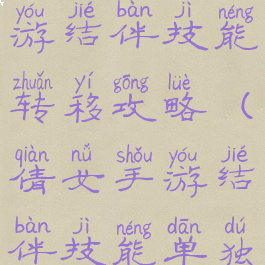 yóu jié bàn jì néng
游结伴技能
zhuǎn yí gōng lüè
转移攻略（
qiàn nǔ shǒu yóu jié
倩女手游结
bàn jì néng dān dú
伴技能单独